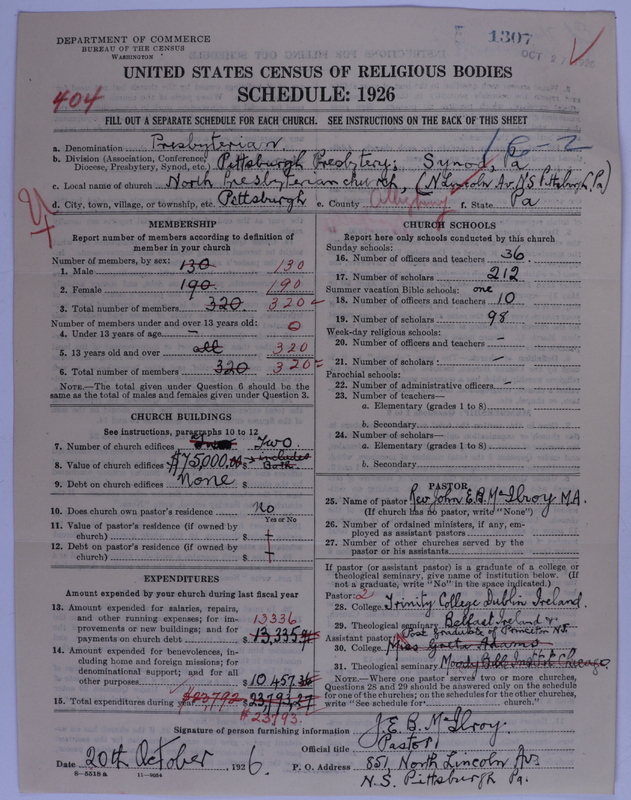 DEPARTMENT OF COMMERCE
BUREAU OF THE CENSUS
WASHINGTON
1307
OCT 2
UNITED STATES CENSUS OF RELIGIOUS BODIES
SCHEDULE: 1926
404
FILL OUT A SEPARATE SCHEDULE FOR EACH CHURCH. SEE INSTRUCTIONS ON THE BACK OF THIS SHEET
16-2
a. Denomination Presbyterian
b. Division (Association, Conference, Diocese, Presbytery, Synod, etc.) Pittsburgh Presbytery; Synod, Pa
c. Local name of church North Presbyterian church, (N Lincoln Av. N S Pittsburgh, Pa)
d. City, town, village, or township, etc. Pittsburgh e. County Allegheny f. State Pa
MEMBERSHIP
Report number of members according to definition of member in your church
Number of members, by sex:
1. Male 130 130
2. Female 190 190
3. Total number of members 320 320
Number of members under and over 13 years old:
4. Under 13 years of age — 0
5. 13 years old and over all 320
6. Total number of members 320 320
NOTE.—The total given under Question 6 should be the same as the total of males and females given under Question 3.
CHURCH BUILDINGS
See instructions, paragraphs 10 to 12
7. Number of church edifices Two
8. Value of church edifices $75,000.00 includes Both
9. Debt on church edifices None $
10. Does church own pastor's residence No
Yes or No
11. Value of pastor's residence (if owned by church) $
12. Debt on pastor's residence (if owned by church) $
EXPENDITURES
Amount expended by your church during last fiscal year
13. Amount expended for salaries, repairs, and other running expenses; for improvements or new buildings; and for payments on church debt 13336 $ 13,335
14. Amount expended for benevolences, including home and foreign missions; for denominational support; and for all other purposes $ 10 457 36
15. Total expenditures during year $23,792 $
$23793.
CHURCH SCHOOLS
Report here only schools conducted by this church
Sunday schools:
16. Number of officers and teachers 36
17. Number of scholars 212
Summer vacation Bible schools: one
18. Number of officers and teachers 10
19. Number of scholars 98
Week-day religious schools:
20. Number of officers and teachers —
21. Number of scholars —
Parochial schools:
22. Number of administrative officers —
23. Number of teachers—
a. Elementary (grades 1 to 8)
b. Secondary
24. Number of scholars—
a. Elementary (grades 1 to 8)
b. Secondary
PASTOR
25. Name of pastor Rev John E. B. McIlroy M.A.
(If church has no pastor, write "None")
26. Number of ordained ministers, if any, employed as assistant pastors
27. Number of other churches served by the pastor or his assistants
If pastor (or assistant pastor) is a graduate of a college or theological seminary, give name of institution below. (If not a graduate, write "No" in the space indicated.)
Pastor: 2
28. College Trinity College Dublin Ireland
29. Theological seminary Belfast Ireland &
Post Graduate of Princeton N.J.
Assistant pastor:
30. College Miss Greta Adams
31. Theological seminary Moody Bible Institute Chicago
NOTE.—Where one pastor serves two or more churches, Questions 28 and 29 should be answered only on the schedule for one of the churches; on the schedules for the other churches, write "See schedule for church."
Signature of person furnishing information J. E. B. McIlroy
Official title Pastor
Date 20th October, 1926.
P. O. Address 851, North Lincoln Av.
N. S. Pittsburgh Pa.
8—5518 a 11—9054